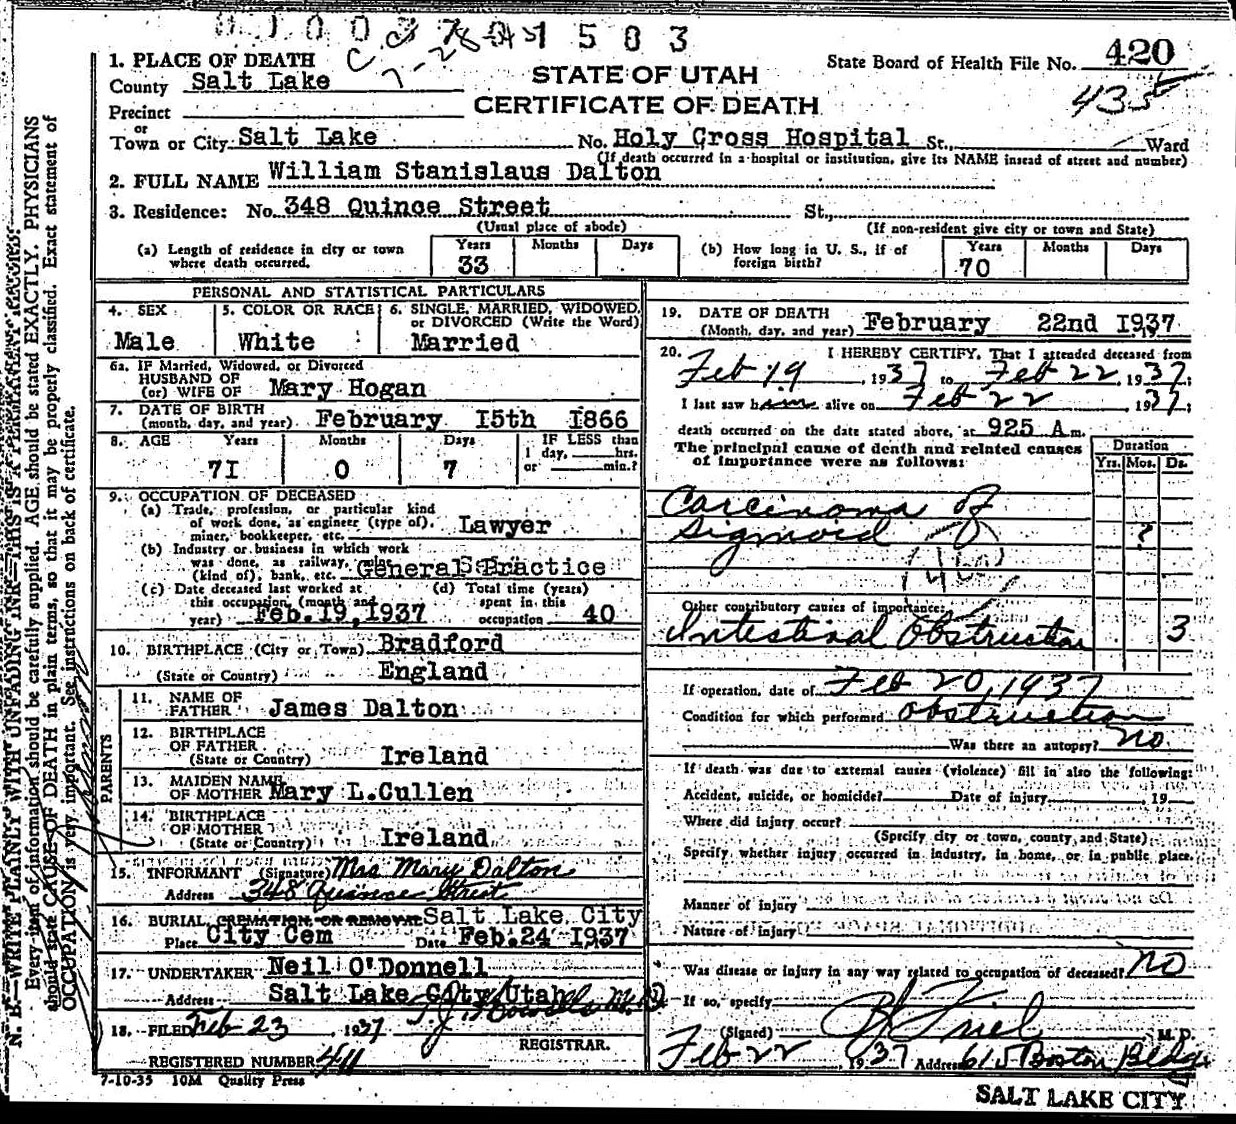 01003701503
State Board of Health File No. 420
1. PLACE OF DEATH
STATE OF UTAH
County Salt Lake
435
CERTIFICATE OF DEATH
Precinct
or
Town or City Salt Lake No. Holy Cross Hospital St., Ward
(If death occurred in a hospital or institution, give its NAME insead of street and number)
2. FULL NAME William Stanislaus Dalton
3. Residence: No. 348 Quince Street St.,
(Usual place of abode) (If non-resident give city or town and State)
(a) Length of residence in city or town where death occurred. Years 33 Months Days
(b) How long in U. S., if of foreign birth? Years 70 Months Days
PERSONAL AND STATISTICAL PARTICULARS
4. SEX Male
5. COLOR OR RACE White
6. SINGLE, MARRIED, WIDOWED, or DIVORCED (Write the Word) Married
6a. IF Married, Widowed, or Divorced
HUSBAND OF
(or) WIFE OF Mary Hogan
7. DATE OF BIRTH
(month, day, and year) February I5th I866
8. AGE Years 7I Months 0 Days 7 IF LESS than 1 day, hrs. or min.?
9. OCCUPATION OF DECEASED
(a) Trade, profession, or particular kind
of work done, as engineer (type of),
miner, bookkeeper, etc. Lawyer
(b) Industry or business in which work
was done, as railway, mine
(kind of), bank, etc. General Practice
(c) Date deceased last worked at
this occupation (month and
year) Feb.19,1937
(d) Total time (years)
spent in this
occupation 40
10. BIRTHPLACE (City or Town) Bradford
(State or Country) England
PARENTS
11. NAME OF
FATHER James Dalton
12. BIRTHPLACE
OF FATHER
(State or Country) Ireland
13. MAIDEN NAME
OF MOTHER Mary L.Cullen
14. BIRTHPLACE
OF MOTHER
(State or Country) Ireland
15. INFORMANT (Signature) Mrs Mary Dalton
Address 348 Quince Street
16. BURIAL, CREMATION, OR REMOVAL Salt Lake City
Place City Cem Date Feb.24 I937
17. UNDERTAKER Neil O'Donnell
Address Salt Lake City Utah
18. FILED Feb 23, 1937
REGISTRAR.
REGISTERED NUMBER 411
7-10-35 10M Quality Press
19. DATE OF DEATH
(Month, day, and year) February 22nd I937
20. I HEREBY CERTIFY, That I attended deceased from
Feb 19, 1937 to Feb 22, 1937;
I last saw him alive on Feb 22 1937;
death occurred on the date stated above, at 925 A m.
The principal cause of death and related causes
of importance were as follows:
Duration
Yrs. Mos. Ds.
Carcinoma of
Sigmoid ?
Other contributory causes of importance:
Intestinal Obstruction 3
If operation, date of Feb 20, 1937
Condition for which performed obstruction
Was there an autopsy? no
If death was due to external causes (violence) fill in also the following:
Accident, suicide, or homicide? Date of injury , 19
Where did injury occur?
(Specify city or town, county, and State)
Specify whether injury occurred in industry, in home, or in public place.
Manner of injury
Nature of injury
Was disease or injury in any way related to occupation of deceased? no
If so, specify
(Signed) Friel M. D.
Feb 22, 1937 Address 615 Boston Bldg
SALT LAKE CITY
N. B.—WRITE PLAINLY WITH UNFADING INK—THIS IS A PERMANENT RECORD
Every item of information should be carefully supplied. AGE should be stated EXACTLY. PHYSICIANS
should state CAUSE OF DEATH in plain terms, so that it may be properly classified. Exact statement of
OCCUPATION is very important. See instructions on back of certificate.